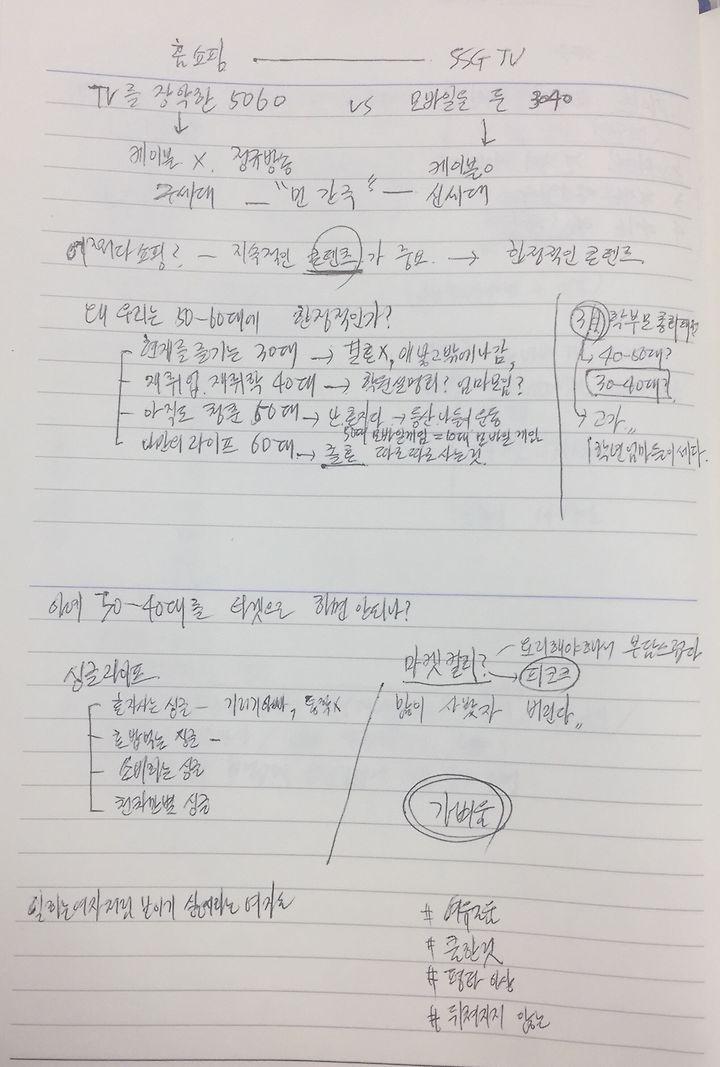 홈쇼핑 ——— SSG TV
TV를 장악한 5060 vs 모바일을 든 3040
케이블 X. 정규방송 케이블o
구세대 — "먼 간극" — 신세대
쇼핑? — 지속적인 콘텐츠가 중요. → 한정적인 콘텐트
왜 우리는 50-60대에 한정적인가?
현재를 즐기는 30대 → 결혼X, 애 낳고 밖에 나감,
재취업. 재취학 40대 → 학원설명회? 엄마모임?
아직도 청춘 50대 → 난 젊다 → 등산. 나들이 운동
50대 모바일게임 = 10대 모바일게임
나만의 라이프 60대 → 졸혼 따로따로 사는것.
3월 학부모
40-50대?
30-40대?
→ 고가
1학년 엄마들이 세다.
아예 30-40대를 타겟으로 하면 안되나?
싱글라이프
혼자사는 싱글 — 기러기아빠, 동창X
혼밥먹는 싱글 —
소비하는 싱글
천차만별 싱글
마켓컬리? 요리해야해서 부담스럽다
많이 사봤자 버린다,,
가벼움
일하는여자처럼 보이기 싫어하는 여자들
# 여유로움
# 쿨한것
# 평타 이상
# 뒤쳐지지 않는